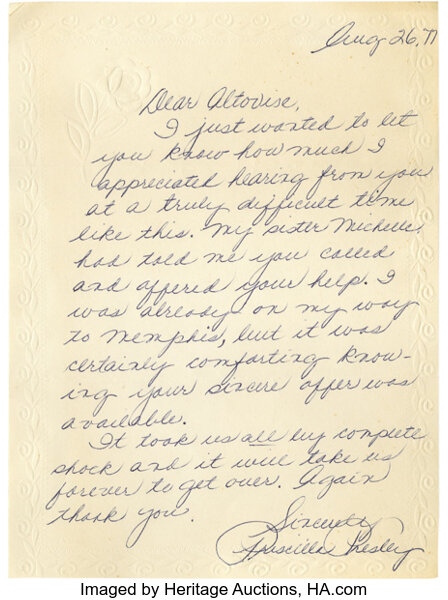 Aug 26, 77
Dear Altovise,
I just wanted to let
you know how much I
appreciated hearing from you
at a truly difficult time
like this. My sister Michelle,
had told me you called
and offered your help. I
was already on my way
to Memphis, but it was
certainly comforting know-
ing your sincere offer was
available.
It took us all by complete
shock and it will take us
forever to get over. Again
thank you.
Sincerely
Priscilla Presley
Imaged by Heritage Auctions, HA.com